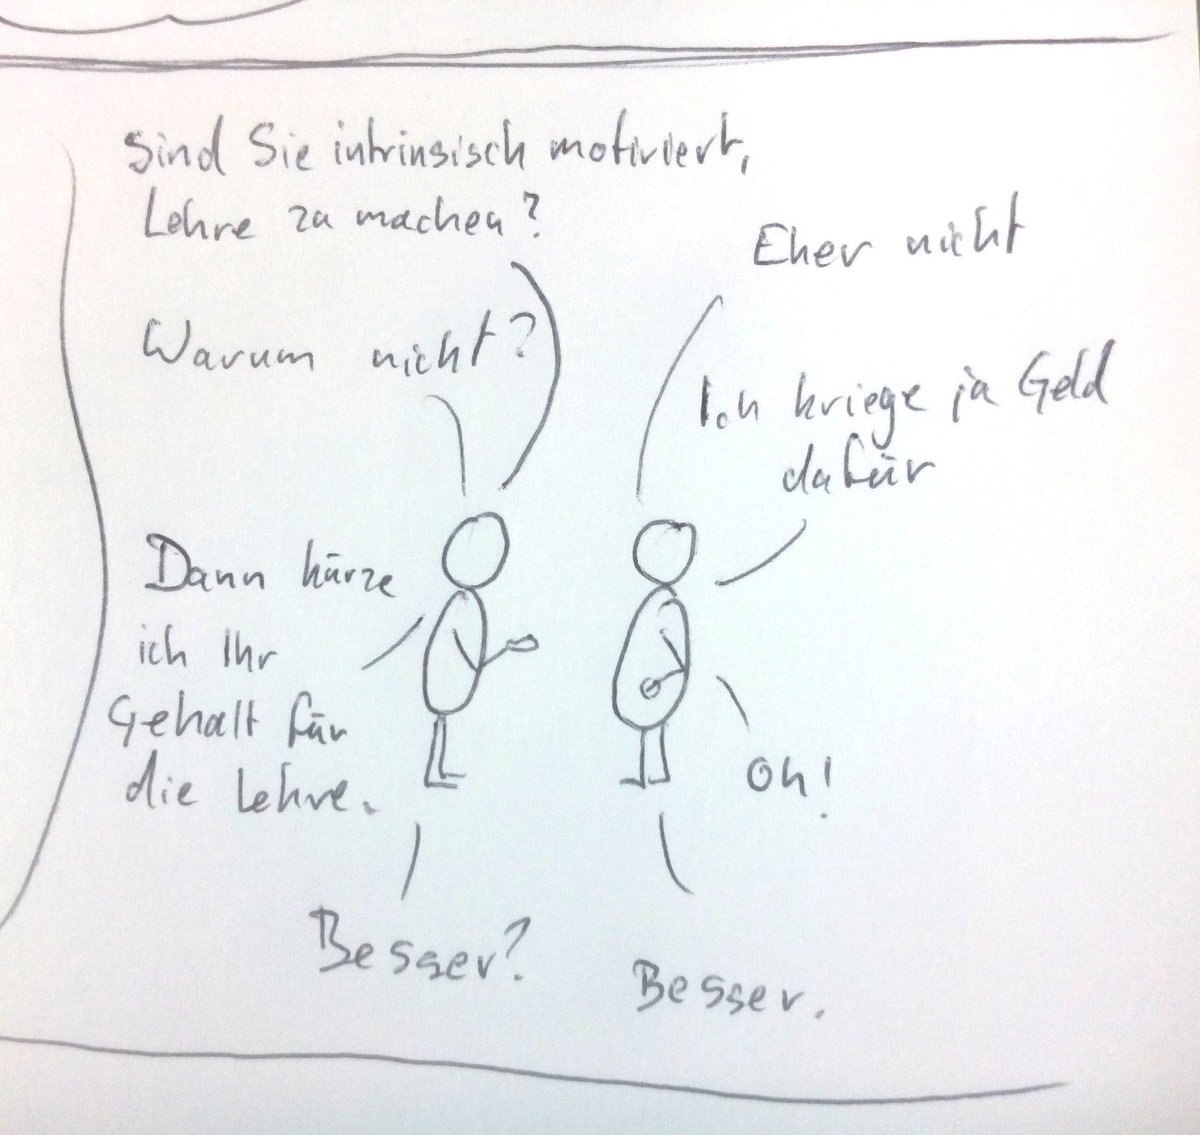 Sind Sie intrinsisch motiviert,
Lehre zu machen?
Eher nicht
Warum nicht?
Ich kriege ja Geld
dafür
Dann kürze
ich Ihr
Gehalt für
die Lehre.
Oh!
Besser?
Besser.